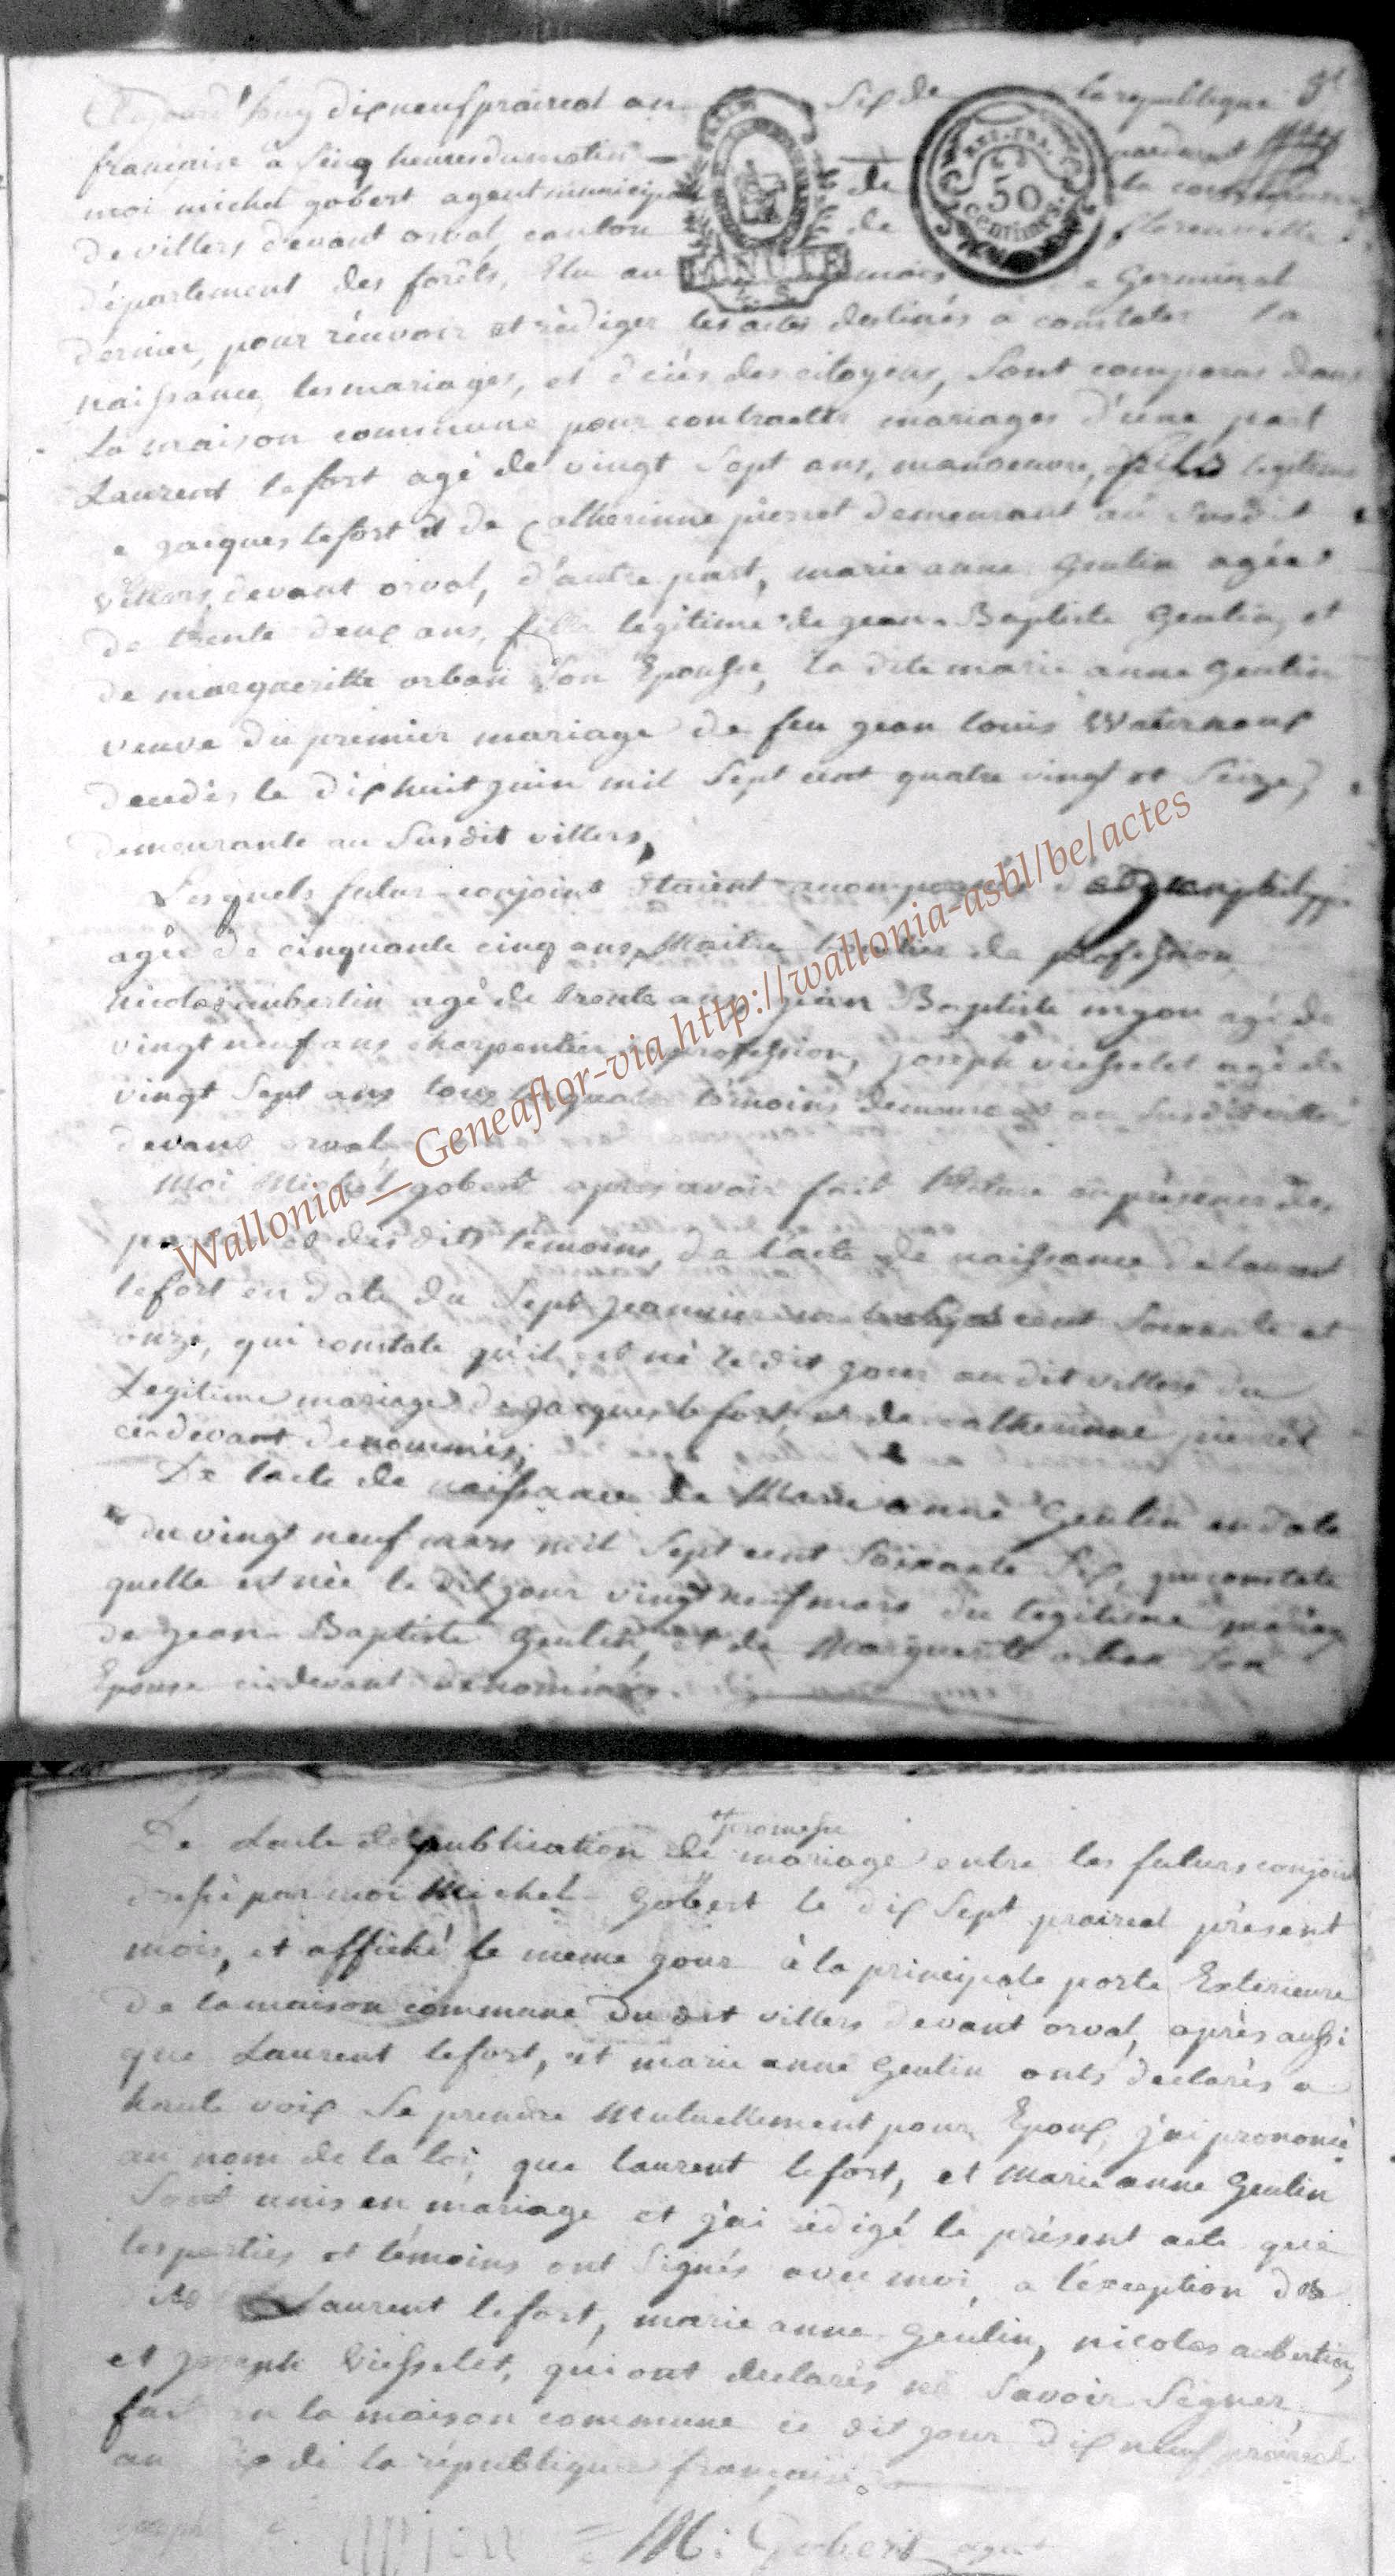 aujourd'huy dixneuf prairial an six de la republique
française à cinq heures du matin pardevant
moi michel gobert agent municipal de la commune
de villers devant orval, canton de florenville
département des forêts, élu au mois de Germinal
dernier, pour recevoir et rédiger les actes destinés à constater la
naissance, les mariages, et décés des citoyens, sont comparus dans
la maison commune pour contracter mariages d'une part
Laurent lefort agé de vingt sept ans, manoeuvre, fils legitime
e jacques lefort et de Catherinne pierret demeurant au susdit
villers devant orval, d'autre part, marie anne Genlin agée
de trente deux ans, fille legitime de jean Baptiste Genlin, et
de margueritte orban son Epousse, la dite marie anne Genlin
veuve du premier mariage de feu jean louis
decedés le dix huit juin mil sept cent quatre vingt et seize,
demeurante au susdit villers,
Lesquels futur conjoints étaient accompagnés jean philippe
agée de cinquante cinq ans, Maitre de profession
nicolas aubertin agé de trente ans jean Baptiste agé de
vingt neuf ans charpentier profession, joseph agé de
vingt sept ans tous témoins demeurant au susdit villers
devant orval
Moi Michel gobert apres avoir fait lecture en présence des
des dits témoins, de l'acte de naissance de laurent
lefort en date du sept cent soixante et
onze, qui constate qu'il est né le dit jour au dit villers du
Legitime mariage de jacques lefort, et de catherinne pierret
cidevant denommés;
De l'acte de naissance de Marie anne Genlin en date
du vingt neuf mars mil sept cent soixante six, qui constate
quelle est née le dit jour vingt neuf mars du legitime mariage
de jean Baptiste Genlin, et de Marguerite orban son
Epouse cidevant denommés.
Wallonia _ Geneaflor-via http://wallonia-asbl/be/actes
MINUTE
50
centimes
De l'acte de publication de promesse mariage entre les futurs conjoint
dressé par moi Michel Gobert le dix sept prairial présent
mois, et affiché le meme jour à la principale porte Exterieure
de la maison commune du dit villers devant orval, après aussi
que Laurent lefort, et marie anne Genlin onts declarés a
haute voix se prendre mutuellement pour Epoux, j'ai prononcé
au nom de la loi, que laurent lefort, et marie anne Genlin
sont unis en mariage et j'ai rédigé le présent acte que
les parties et témoins ont signés avec moi, a l'exception des
dits Laurent lefort, marie anne Genlin, nicolas aubertin,
et joseph qui ont declarés ne savoir signer,
fait en la maison commune ce dit jour dix neuf prairial
an six de la république française.
M: Gobert agent